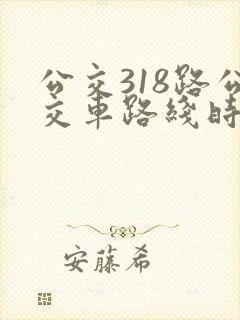 公交318路公
交车路线时
安藤希